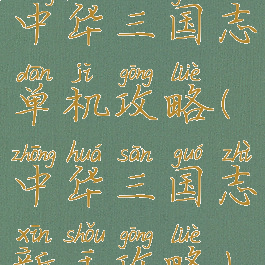 中华三国志
dān jī gōng lüè
单机攻略(
zhōng huá sān guó zhì
中华三国志
xīn shǒu gōng lüè
新手攻略)